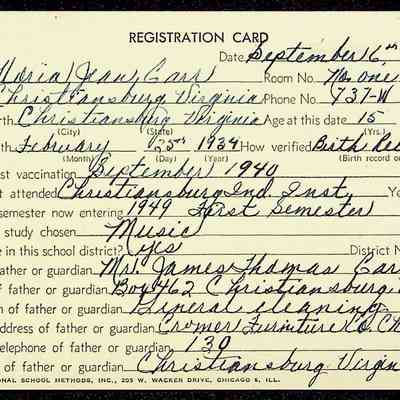 REGISTRATION CARD
Date September 6th
Gloria Jean Carr
Christiansburg Virginia Phone No. 737-W
Room No. No. one
rth Christiansburg Virginia Age at this date 15
(City) (State) (Yrs.)
th February 25th 1934 How verified Birth Rec
(Month) (Day) (Year) (Birth record o
st vaccination September 1940
t attended Christiansburg Ind. Inst. Ye
semester now entering 1949 First Semester
study chosen Music
e in this school district? yes District N
ather or guardian Mr. James Thomas Carr
f father or guardian Box 462 Christiansburg
n of father or guardian General cleaning
ddress of father or guardian Cromer Furniture Co. Ch
elephone of father or guardian 130
of father or guardian Christiansburg Virgin
ONAL SCHOOL METHODS, INC., 205 W. WACKER DRIVE, CHICAGO 6, ILL.